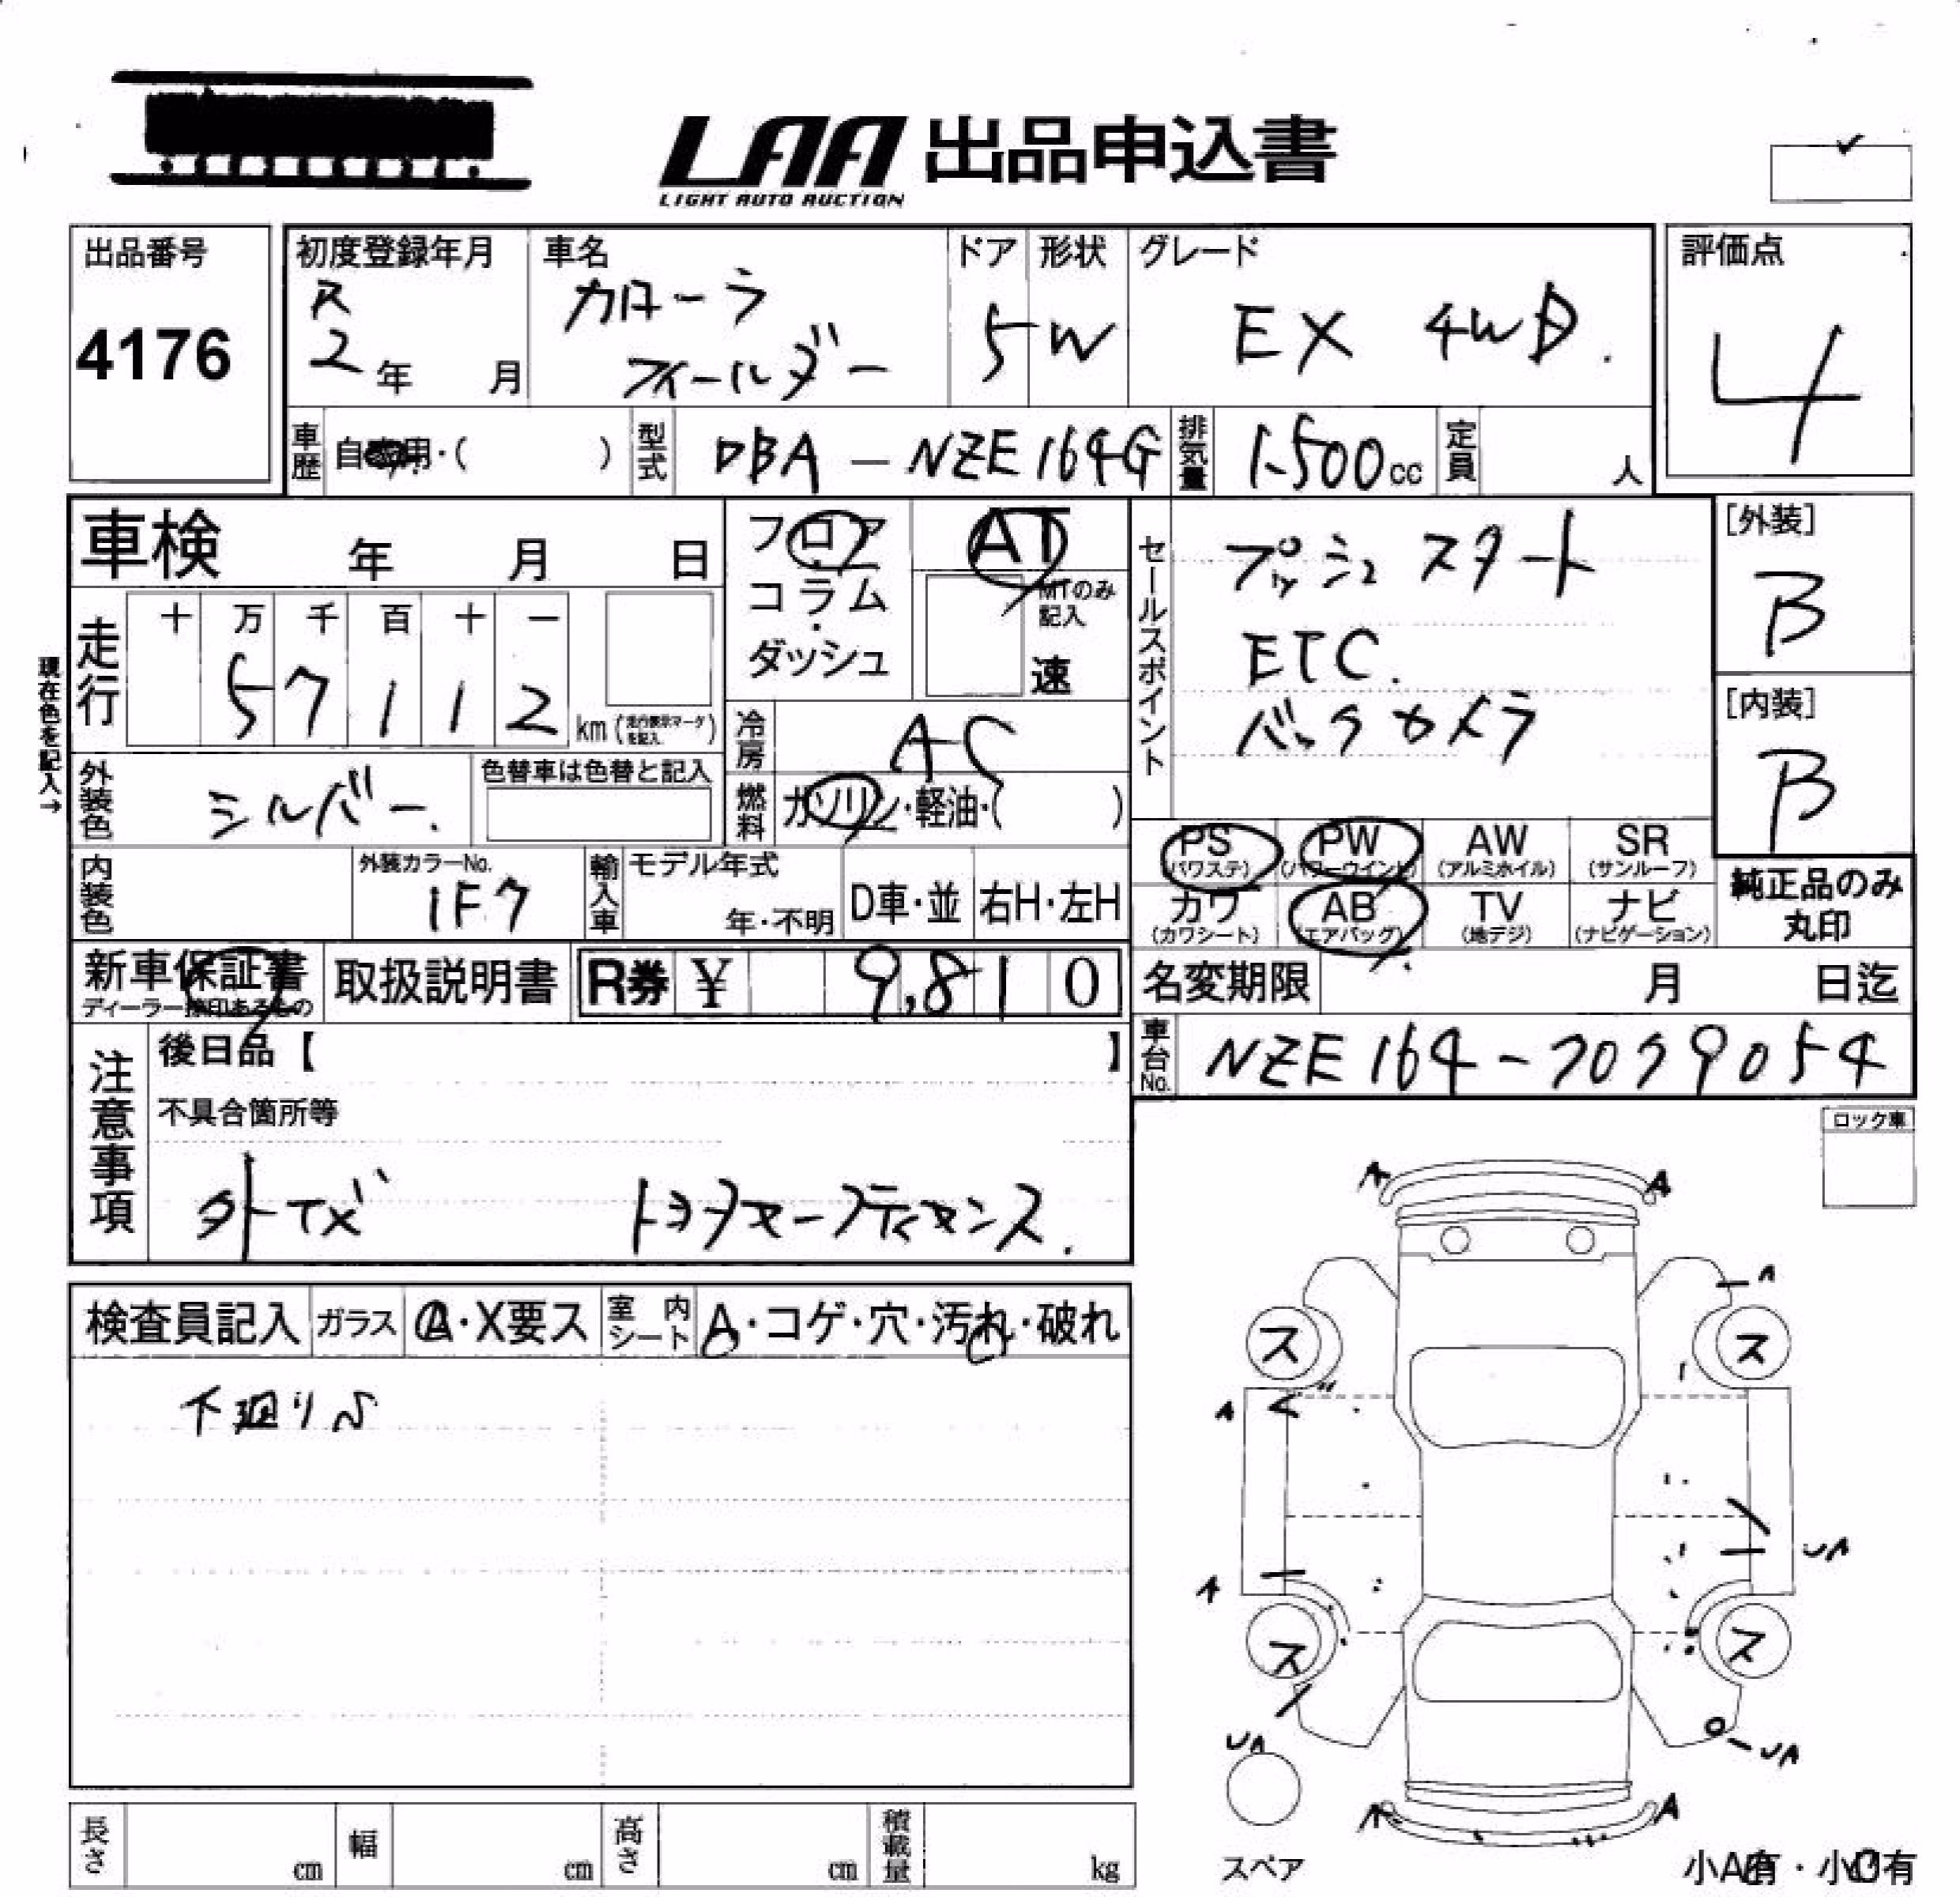 LAA 出品申込書
LIGHT AUTO AUCTION
出品番号
4176
初度登録年月
R
2 年 月
車名
カローラ
フィールダー
ドア
5
形状
W
グレード
EX 4WD.
評価点
4
車歴
自家用・( )
型式
DBA-NZE164G
排気量
1500cc
定員
人
車検 年 月 日
フロア
コラム
ダッシュ
AT
MTのみ
記入
速
セールスポイント
プッシュスタート
ETC.
バックカメラ
[外装]
B
[内装]
B
現在色を記入→
走行
十 万 千 百 十 一
5 7 1 1 2
km (走行表示マークを記入)
冷房
AC
外装色
シルバー.
色替車は色替と記入
燃料
ガソリン・軽油・( )
PS
(パワステ)
PW
(パワーウインド)
AW
(アルミホイル)
SR
(サンルーフ)
カワ
(カワシート)
AB
(エアバッグ)
TV
(地デジ)
ナビ
(ナビゲーション)
純正品のみ
丸印
内装色
外装カラーNo.
1F7
輸入車
モデル年式
年・不明
D車・並
右H・左H
新車保証書
ディーラー捺印あるもの
取扱説明書
R券 ¥ 9,810
名変期限 月 日迄
車台No.
NZE164-7079054
注意事項
後日品【 】
不具合箇所等
外キズ トヨタセーフティセンス.
ロック車
検査員記入
ガラス
A・X要ス
室内シート
A・コゲ・穴・汚れ・破れ
下廻りS
A A
A
ス ス
A
UA
A
ス ス
UA
UA
A A
スペア
長さ
cm
幅
cm
高さ
cm
積載量
kg
小A有・小U有